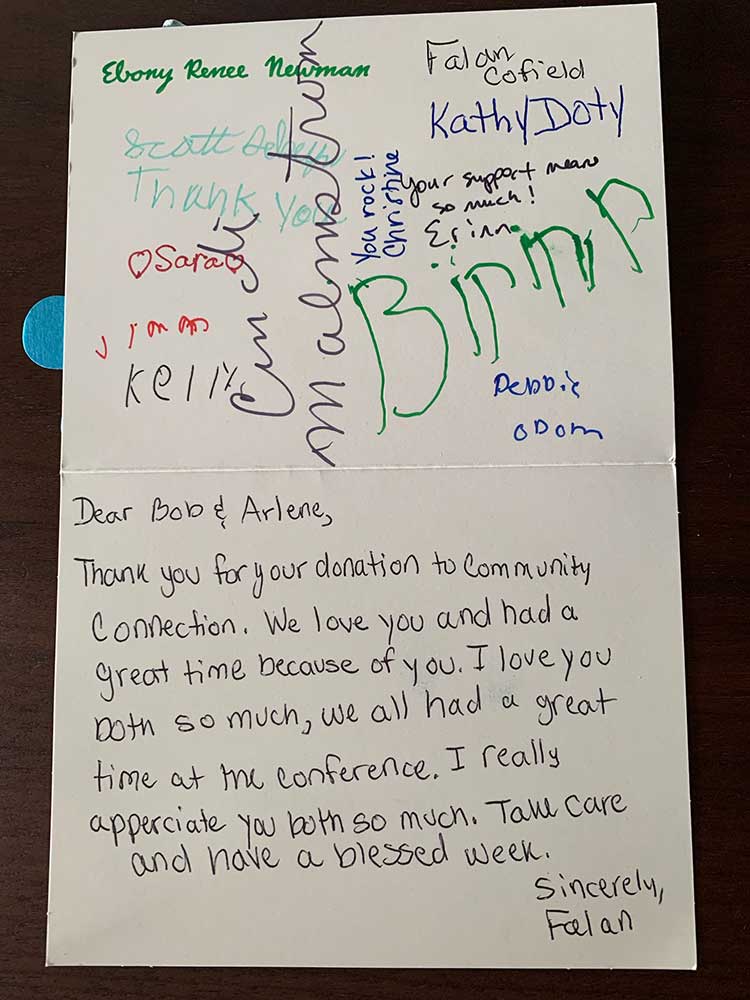 Ebony Renee Newman
Falan
Cofield
Kathy Doty
Scott
Thank You
You rock!
Christine
Your support means
so much!
Erinn
♡Sara♡
Cindi
Malmstrom
Kelly
Debbie
Odom
Dear Bob & Arlene,
Thank you for your donation to Community
Connection. We love you and had a
great time because of you. I love you
both so much, we all had a great
time at the conference. I really
apperciate you both so much. Take care
and have a blessed week.
Sincerely,
Falan